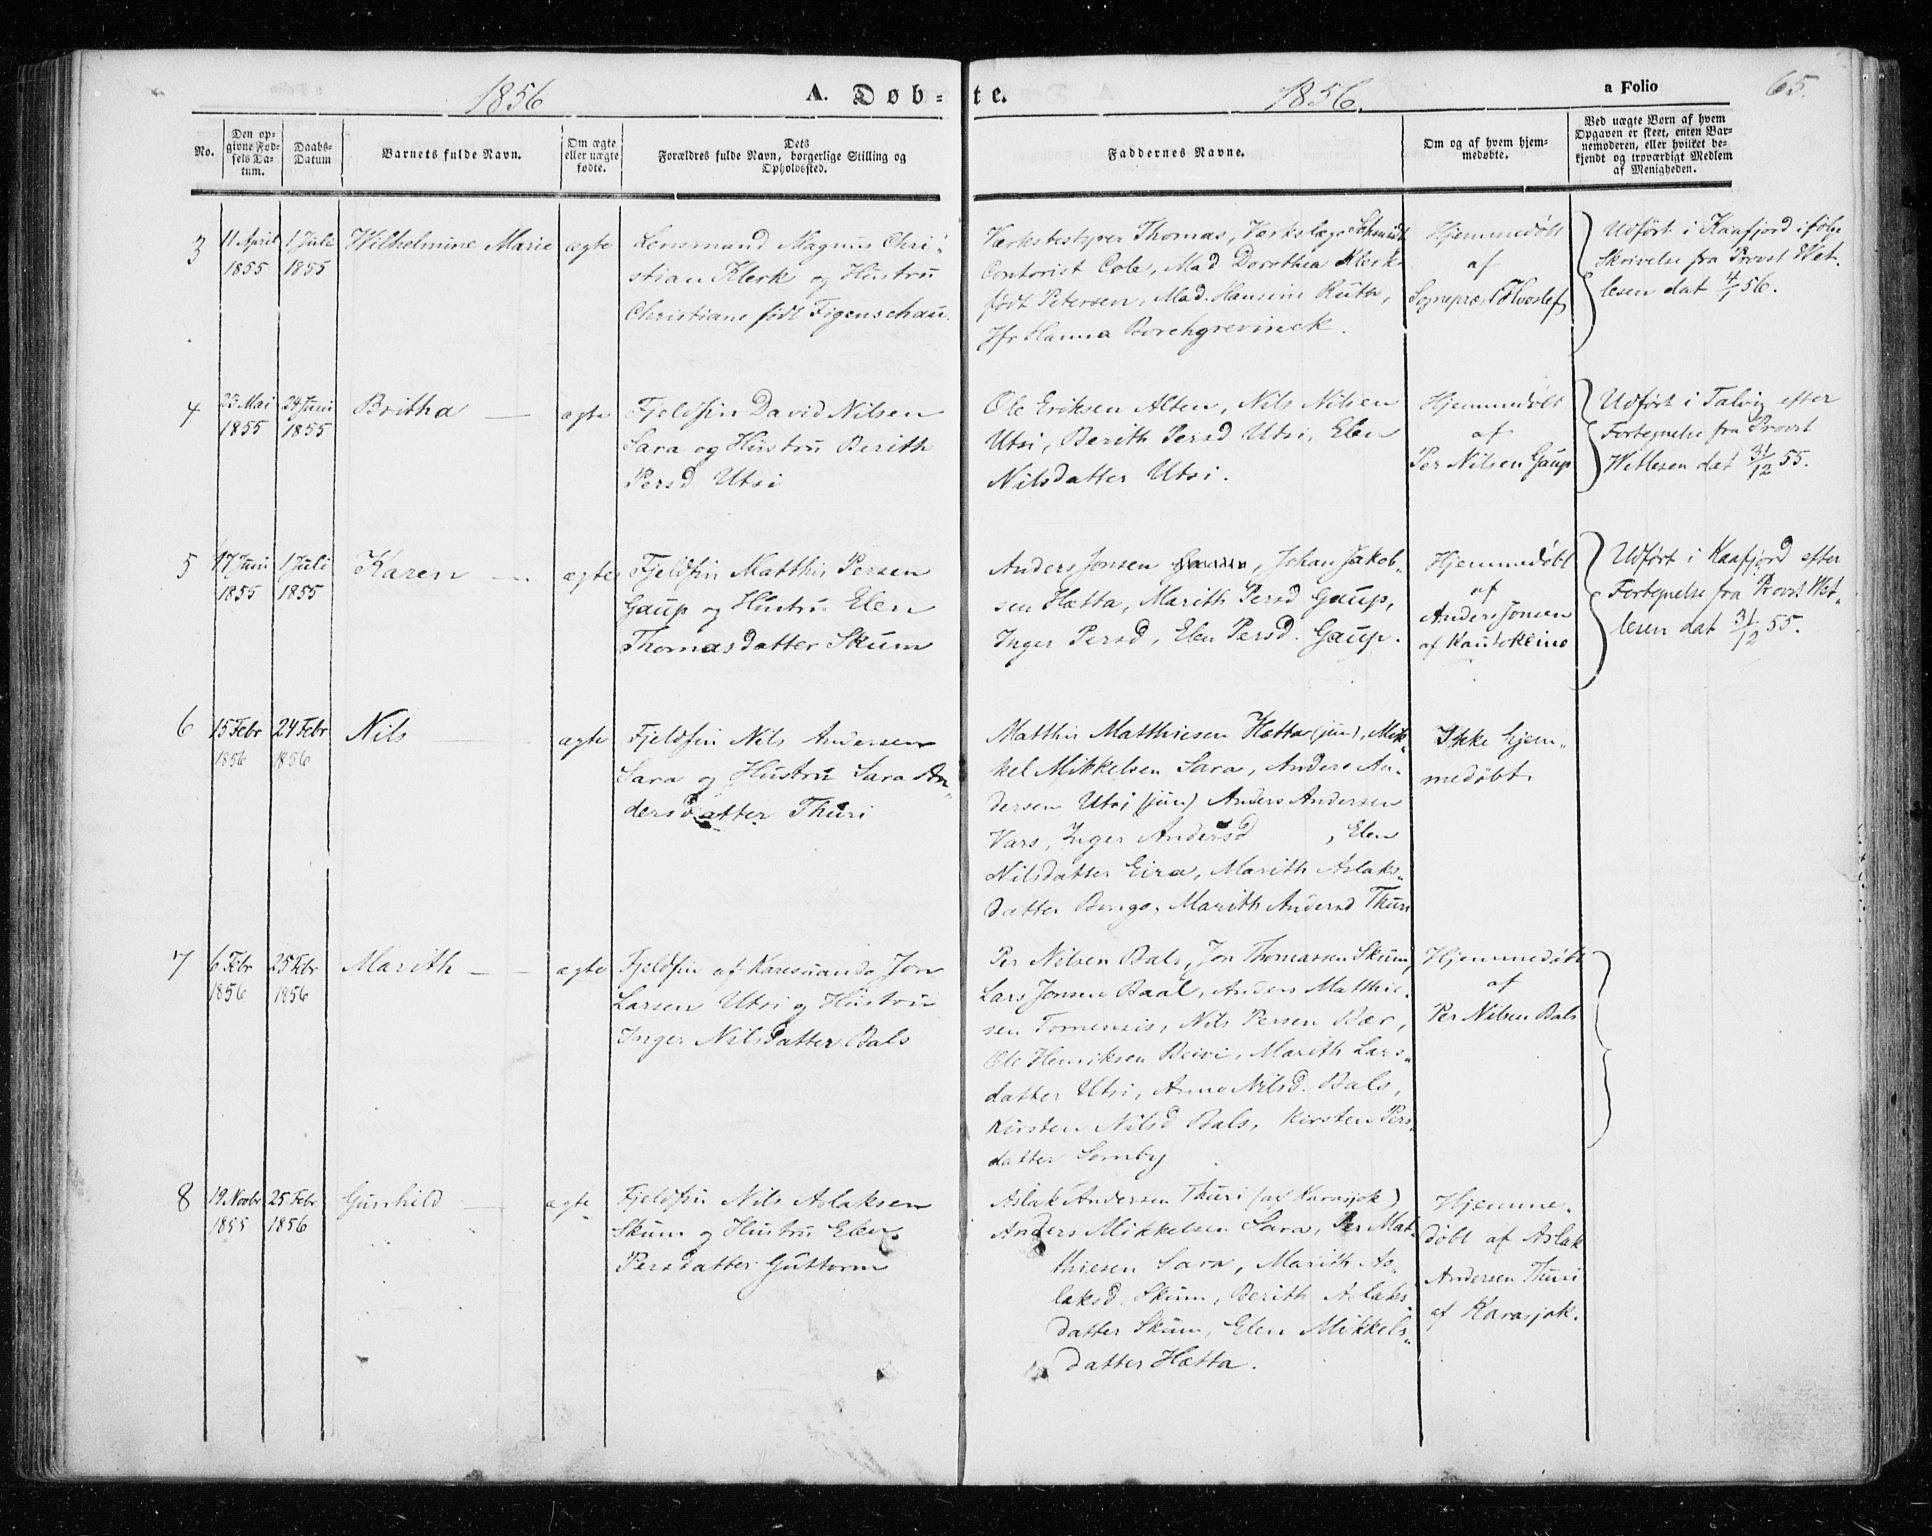 1856 A. Døb-
te. 1856. a Folio 65.
No.
Den op-
givne Fød-
sels Da-
tum.
Daabs-
Datum
Barnets fulde Navn.
Om ægte
eller uægte
fødte.
Dets
Forældres fulde Navn, borgerlige Stilling og
Opholdssted.
Faddernes Navne.
Om og af hvem hjem-
medøbte.
Ved uægte Børn af hvem
Opgaven er skeet, enten Bar-
nemoderen, eller hvilket be-
kjendt og troværdigt Medlem
af Menigheden.
3
11 April
1855
1 Juli
1855
Wilhelmine Marie
ægte
Lensmand Magnus Chri-
stian Klerk og Hustru
Christiane født Figenschau.
Værksbestyrer Thomas, Værkslæge Schmidt
Contorist Cole, Mad Dorothea Klerk
født Petersen, Mad. Hansine Ruth,
Jfr Hanna Borchgrevinck.
Hjemmedøbt
af
Sognepræst Hvoslef
Udført i Kaafjord ifølge
Skrivelse fra Provst Wet-
lesen dat 4/1 56.
4
23 Mai
1855
24 Juni
1855
Britha
ægte
Fjeldfin David Nilsen
Sara og Hustru Berith
Persd Utsi
Ole Eriksen Alten, Nils Nilsen
Utsi, Berith Persd Utsi, Elen
Nilsdatter Utsi.
Hjemmedøbt
af
Per Nilsen Gaup
Udført i Talvig efter
Fortegnelse fra Provst
Wetlesen dat 31/12 55.
5
17 Juni
1855
1 Juli
1855
Karen
ægte
Fjeldfin Matthis Persen
Gaup og Hustru Elen
Thomasdatter Skum
Anders Jonsen, Johan Jakob-
sen Hætta, Marith Persd Gaup,
Inger Persd, Elen Persd. Gaup.
Hjemmedøbt
af
Anders Jonsen
af Kautokeino
Udført i Kaafjord efter
Fortegnelse fra Provst Wet-
lesen dat 31/12 55.
6
15 Febr
1856
24 Febr
1856
Nils
ægte
Fjeldfin Nils Andersen
Sara og Hustru Sara An-
dersdatter Thuri
Matthis Matthiesen Hætta (jun), Mik-
kel Mikkelsen Sara, Anders An-
dersen Utsi (jun) Anders Andersen
Vars, Inger Andersd , Elen
Nilsdatter Eira, Marith Aslaks-
datter Bongo, Marith Andersd Thuri
Ikke hjem-
medøbt.
7
6 Febr
1856
25 Febr
1856
Marith
ægte
Fjeldfin af Karesuando Jon
Larsen Utsi og Hustru
Inger Nilsdatter Bals
Per Nilsen Bals, Jon Thomassen Skum,
Lars Jonsen Baal, Anders Matthie-
sen Tornensis, Nils Persen Bær,
Ole Henriksen Beivi, Marith Lars-
datter Utsi, Anne Nilsd. Bals,
Kirsten Nilsd Bals, Kirsten Pers-
datter Somby
Hjemmedøbt
af
Per Nilsen Bals
8
19 Novbr
1855
25 Febr
1856
Gunhild
ægte
Fjeldfin Nils Aslaksen
Skum og Hustru Elen
Persdatter Guttorm
Aslak Andersen Thuri (af Karasjok)
Anders Mikkelsen Sara, Per Mat-
thiesen Sara, Marith As-
laksd. Skum, Berith Aslaks-
datter Skum, Elen Mikkels-
datter Hætta.
Hjemme-
døbt af Aslak
Andersen Thuri
af Karasjok.